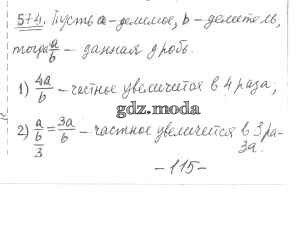 574. Пусть a-делимое, b-делитель,
тогда a/b - данная дробь.
1) 4a/b - частное увеличится в 4 раза,
gdz.moda
2) a/(b/3) = 3a/b - частное увеличится в 3 ра-
за.
-115-